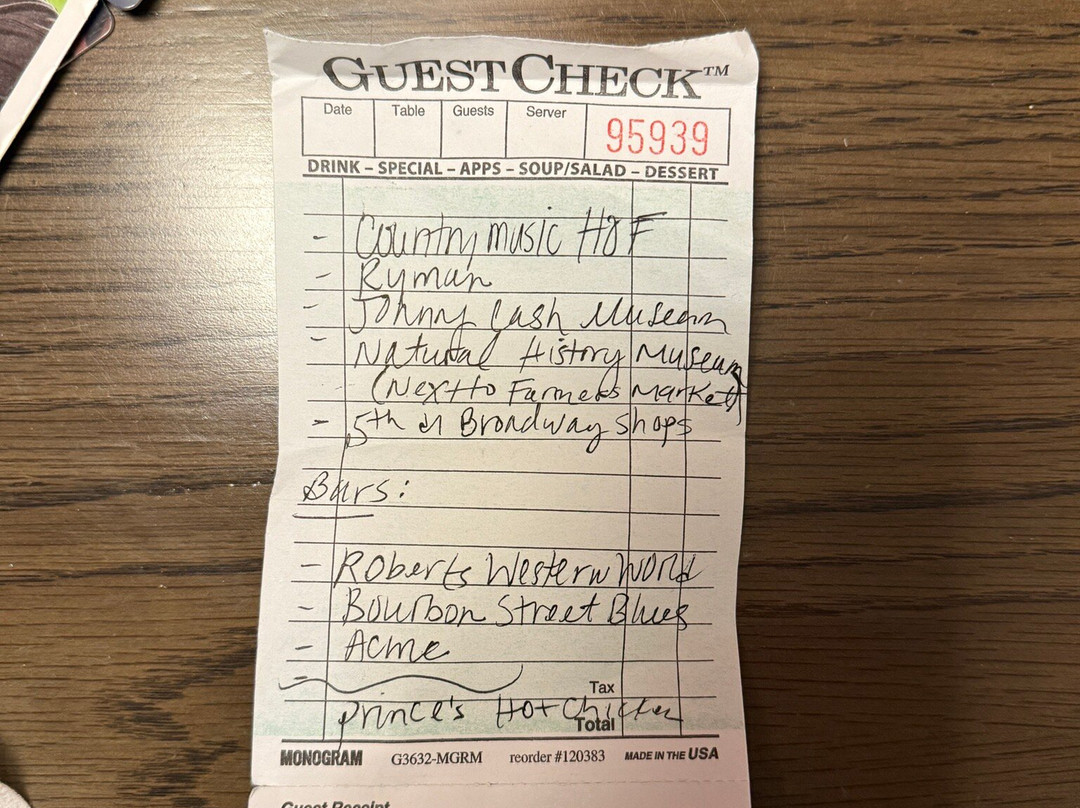 GUEST CHECK™
Date Table Guests Server 95939
DRINK – SPECIAL – APPS – SOUP/SALAD – DESSERT
- Country music HOF
- Ryman
- Johnny Cash Museum
- Natural History Museum
(Next to Farmers Market)
- 5th & Broadway Shops
Bars:
- Roberts Western World
- Bourbon Street Blues
- Acme
-
Tax
Prince's Hot Chicken
Total
MONOGRAM G3632-MGRM reorder #120383 MADE IN THE USA
Guest Receipt